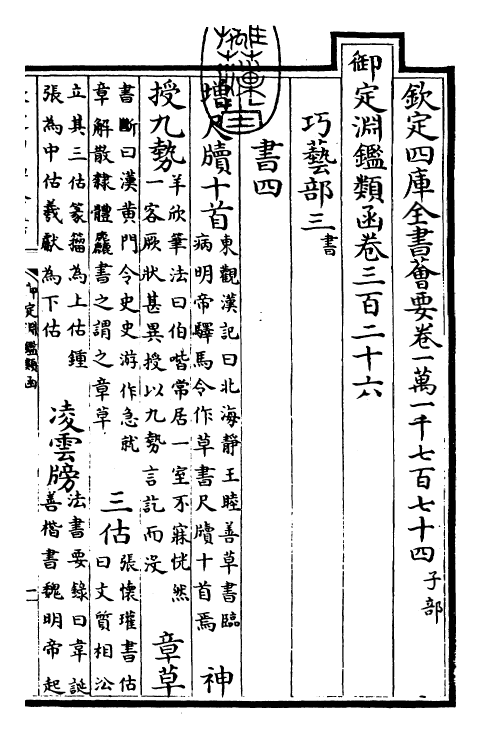 欽定四庫全書薈要卷一萬一千七百七十四 子部
御定淵鑑類函卷三百二十六
巧藝部三 書
書四
增尺牘十首 東觀漢記曰北海靜王睦善草書臨
病明帝驛馬令作草書尺牘十首焉 神
授九勢 羊欣筆法曰伯喈常居一室不寐恍然
一客厥狀甚異授以九勢言訖而沒 章草
書斷曰漢黃門令史史游作急就
章解散隸體麤書之謂之章草 三估 張懷瓘書估
曰文質相沿
立其三估篆籀為上估鍾
張為中估羲獻為下估 凌雲牓 法書要錄曰韋誕
善楷書魏明帝起
御定淵鑑類函
一